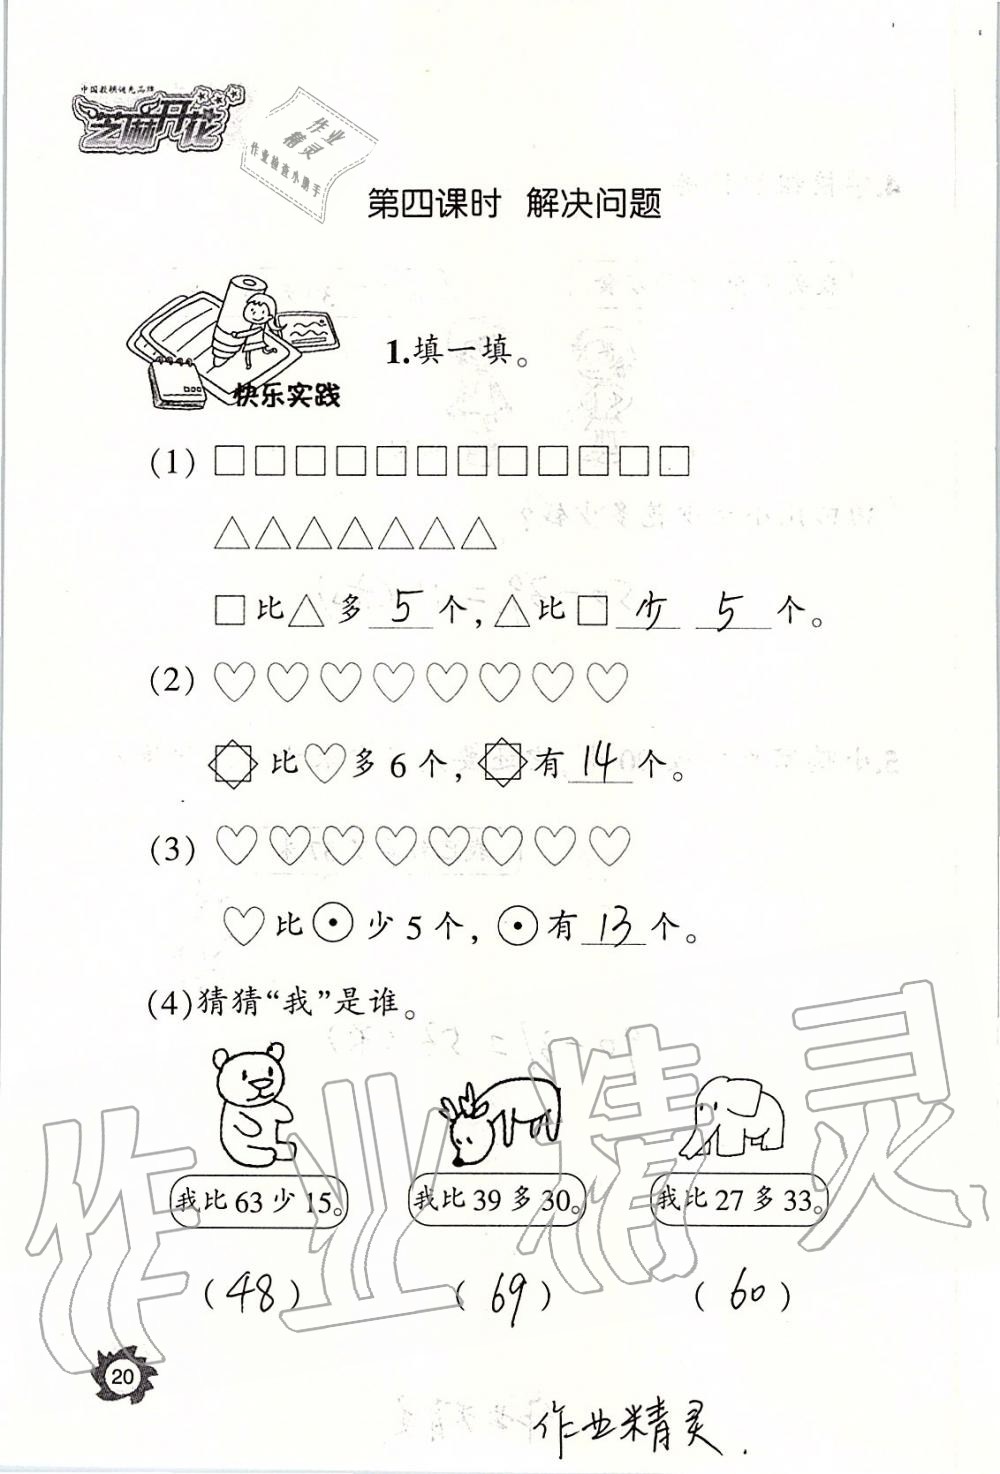 中国教辅领先品牌
芝麻开花
作业
精灵
作业检查小助手
第四课时 解决问题
快乐实践
1.填一填。
(1) □□□□□□□□□□□□
△△△△△△△
□比△多 5 个,△比□ 少 5 个。
(2) ♡♡♡♡♡♡♡♡
比♡多6个,有 14 个。
(3) ♡♡♡♡♡♡♡♡
♡比⊙少5个,⊙有 13 个。
(4)猜猜“我”是谁。
我比63少15。 我比39多30。 我比27多33。
(48) (69) (60)
作业精灵
20
作业精灵.